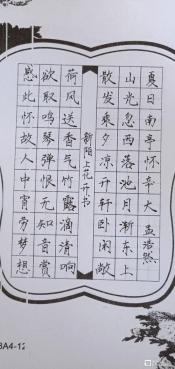 夏日南亭怀辛大 孟浩然
山光忽西落池月渐东上
散发乘夕凉开轩卧闲敞
新阳上花开书
荷风送香气竹露滴清响
欲取鸣琴弹恨无知音赏
感此怀故人中宵劳梦想
A4-12